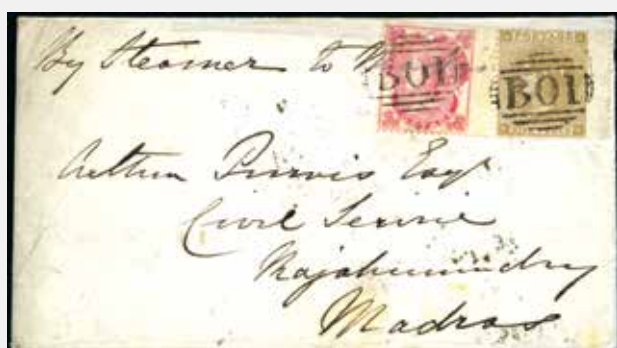 By Steamer to
B01
B01
POSTAGE
Arthur Purvis Esqr
Civil Service
Rajahmundry
Madras